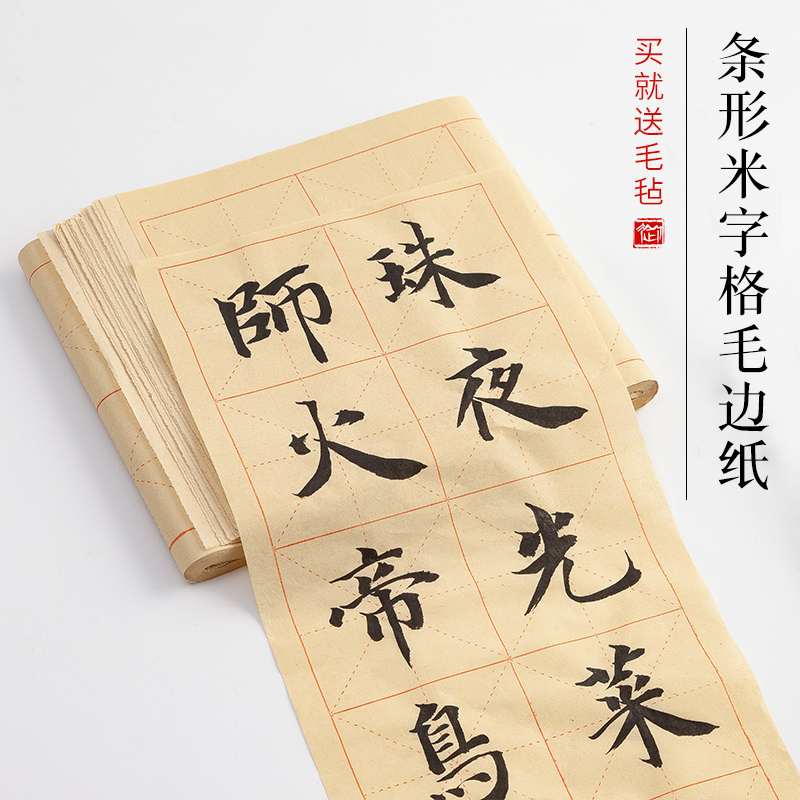 条形米字格毛边纸
买就送毛毡
珠夜光菜
師火帝鳥